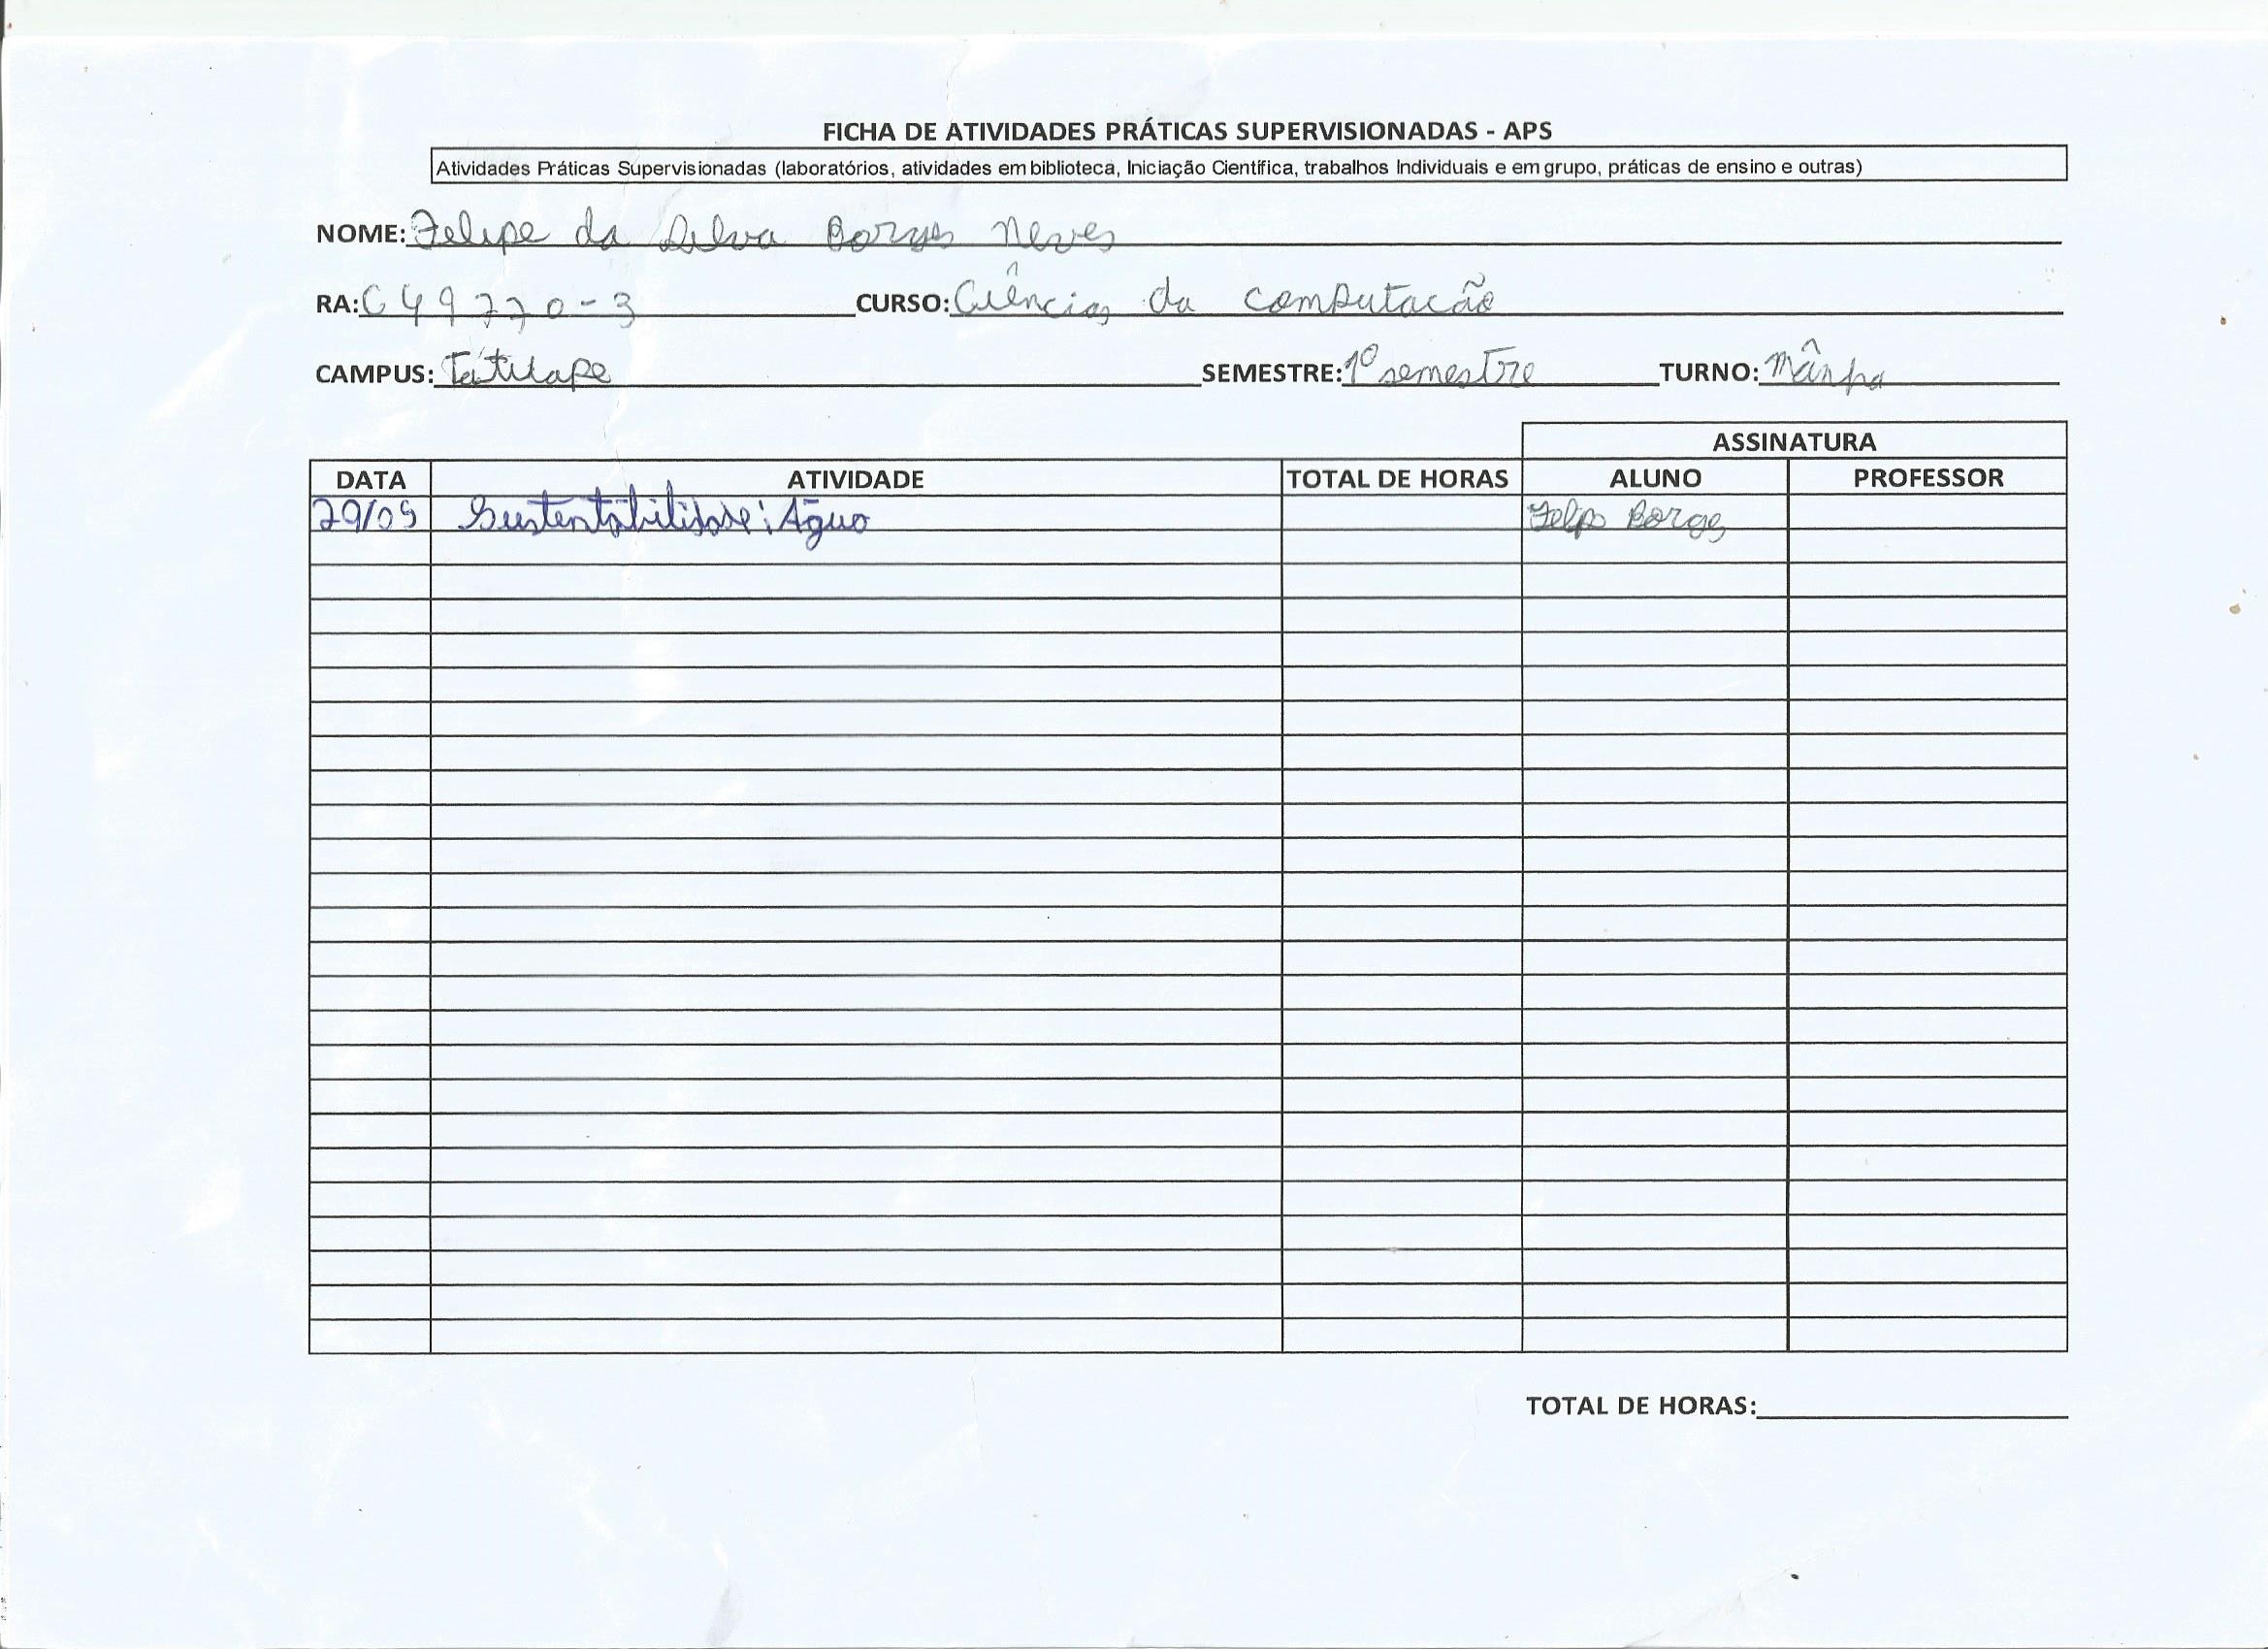 FICHA DE ATIVIDADES PRÁTICAS SUPERVISIONADAS - APS
Atividades Práticas Supervisionadas (laboratórios, atividades em biblioteca, Iniciação Científica, trabalhos Individuais e em grupo, práticas de ensino e outras)
NOME: Felipe da Silva Borges Neves
RA: C49770-3 CURSO: Ciências da computacão
CAMPUS: Tatuape SEMESTRE: 1º semestre TURNO: Mânha
ASSINATURA
DATA ATIVIDADE TOTAL DE HORAS ALUNO PROFESSOR
29/05 Sustentabilidade: Água Felipe Borges
TOTAL DE HORAS: